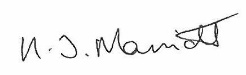 N. J. Marriott